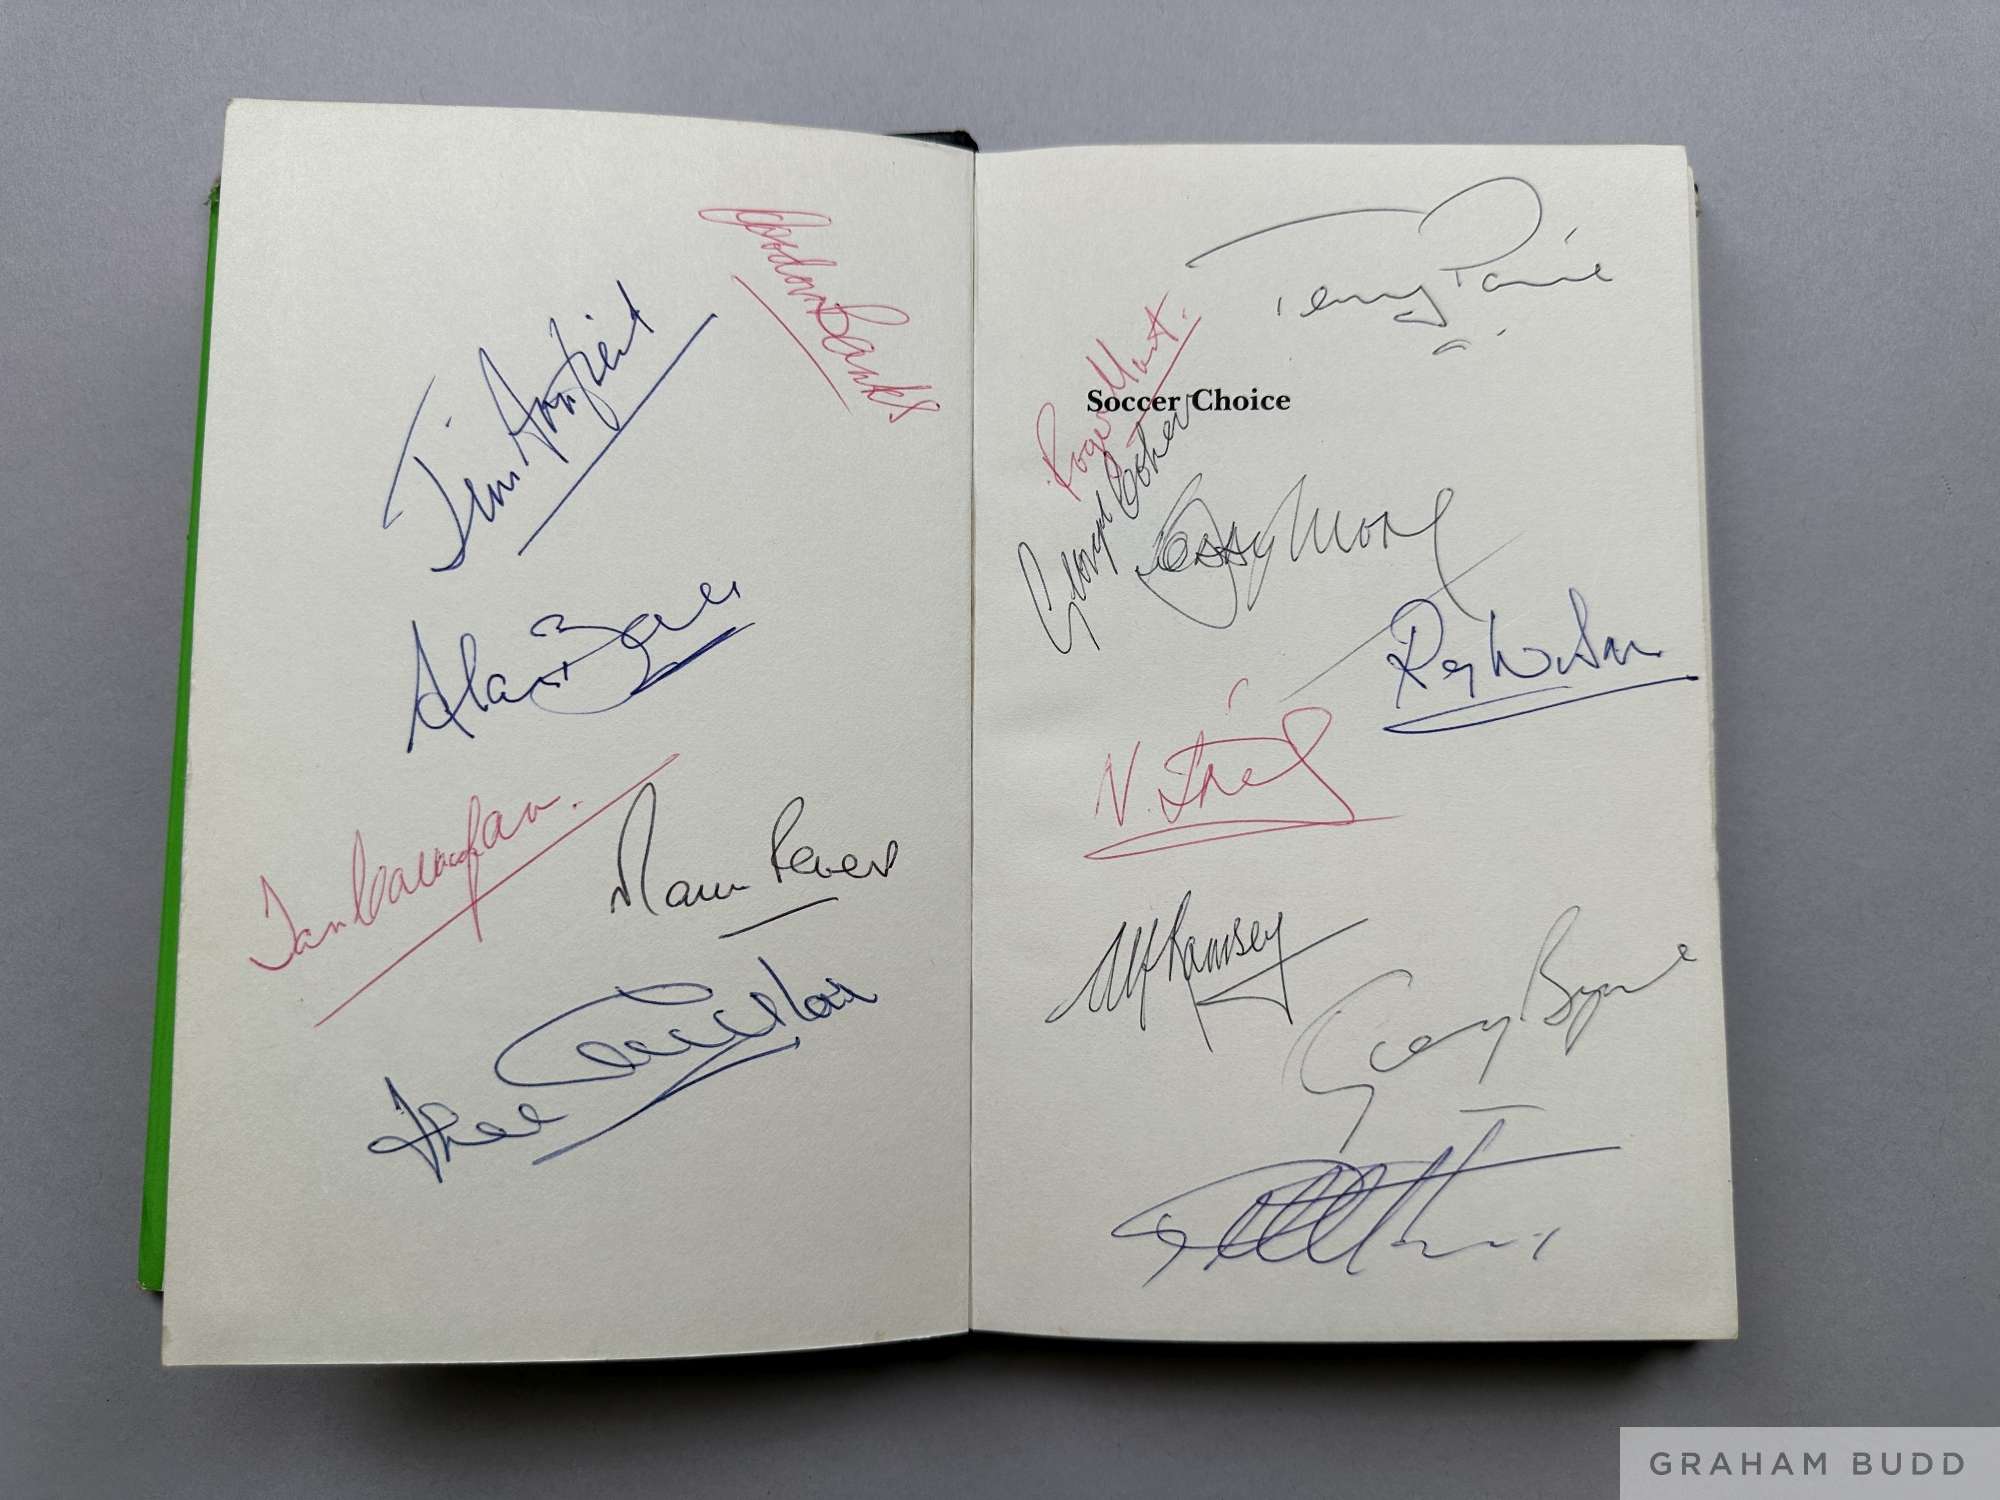 Gordon Banks
Jim Armfield
Alan Ball
Ian Callaghan.
Martin Peters
Terry Paine
Roger Hunt.
Soccer Choice
George Cohen
Bobby Moore
Ray Wilson
N. Stiles
Alf Ramsey
Gerry Byrne
GRAHAM BUDD